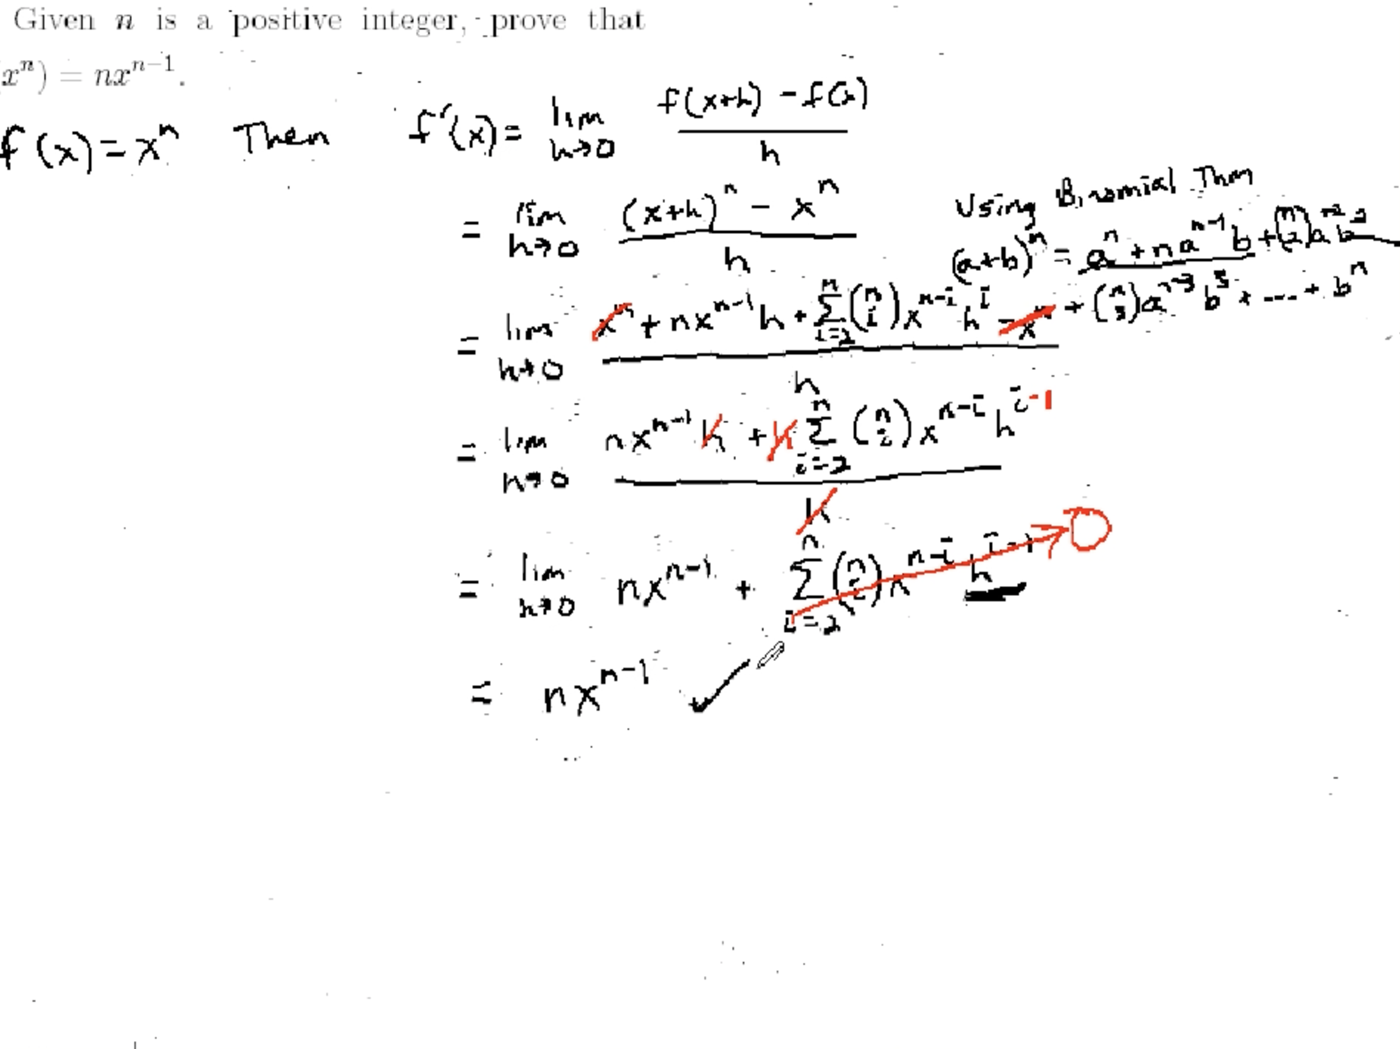 Given n is a positive integer, prove that
x^n) = nx^{n-1}.
f(x) = x^n Then f'(x) = lim_{h→0} \frac{f(x+h) - f(x)}{h}
= lim_{h→0} \frac{(x+h)^n - x^n}{h}
Using Binomial Thm
(a+b)^n = a^n + na^{n-1}b + \binom{n}{2}a^{n-2}b^2
+ \binom{n}{3}a^{n-3}b^3 + .... + b^n
= lim_{h→0} \frac{x^n + nx^{n-1}h + \sum_{i=2}^{n} \binom{n}{i} x^{n-i} h^i - x^n}{h}
= lim_{h→0} \frac{nx^{n-1}h + h \sum_{i=2}^{n} \binom{n}{i} x^{n-i} h^{i-1}}{h}
= lim_{h→0} nx^{n-1} + \sum_{i=2}^{n} \binom{n}{i} x^{n-i} h^{i-1} → 0
= nx^{n-1} ✓